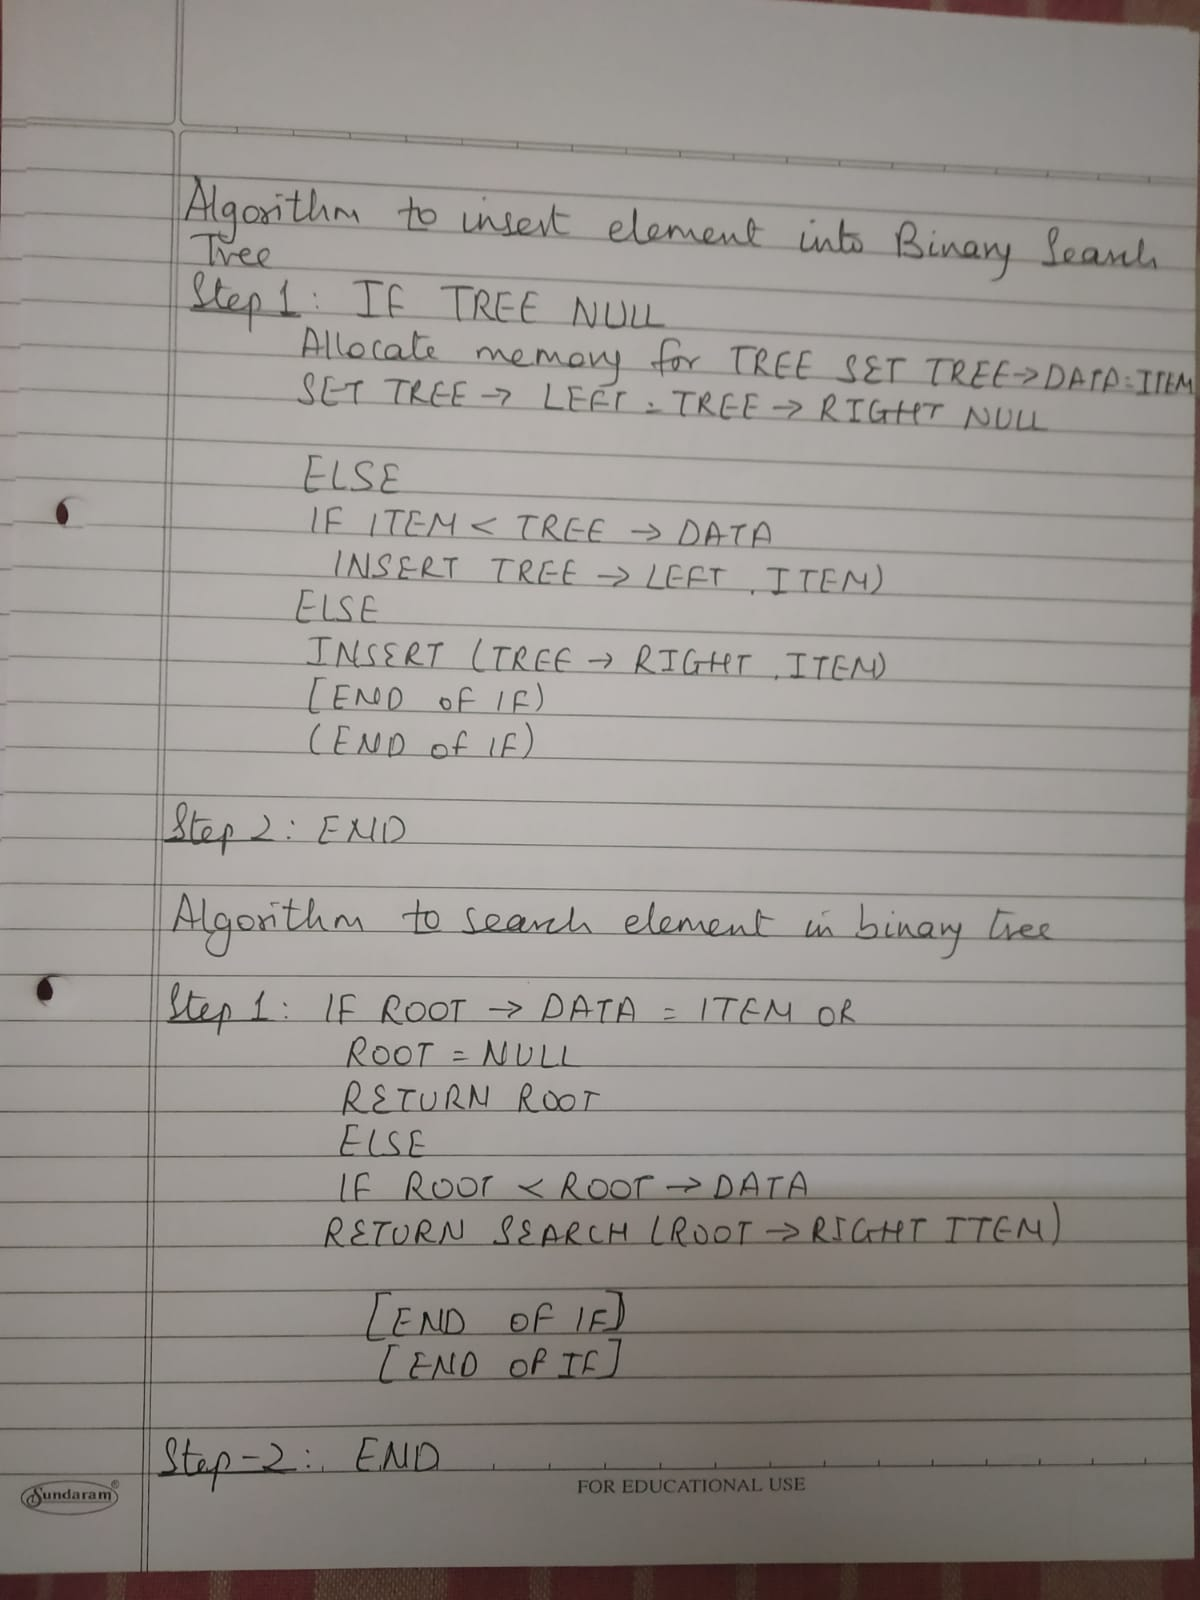 Algorithm to insert element into Binary Search
Tree
Step 1: IF TREE NULL
Allocate memory for TREE SET TREE→DATA=ITEM
SET TREE → LEFT = TREE → RIGHT NULL
ELSE
IF ITEM < TREE → DATA
INSERT TREE → LEFT, ITEM)
ELSE
INSERT (TREE → RIGHT, ITEM)
[END OF IF)
(END of IF)
Step 2: END
Algorithm to search element in binary tree
Step 1: IF ROOT → DATA = ITEM OR
ROOT = NULL
RETURN ROOT
ELSE
IF ROOT < ROOT → DATA
RETURN SEARCH (ROOT → RIGHT ITEM)
[END OF IF]
[END OF IF]
Step-2: END
Sundaram®
FOR EDUCATIONAL USE